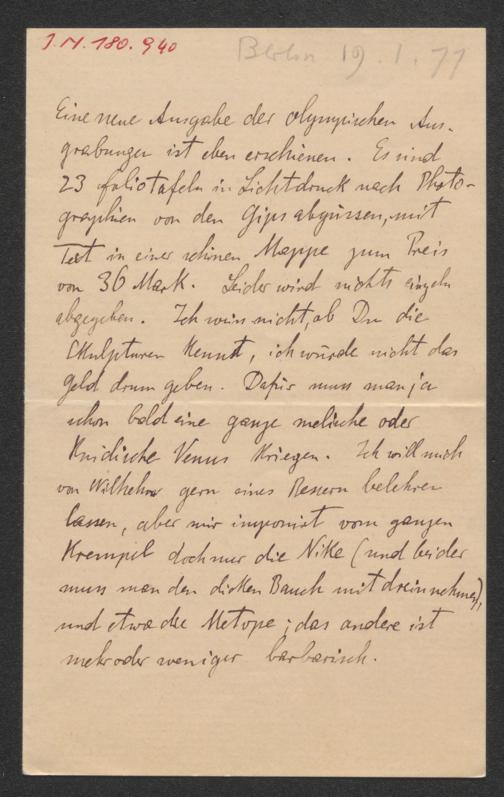 J.N. 180.940
Berlin 19.1.77
Eine neue Ausgabe der olympischen Aus-
grabungen ist eben erschienen. Es sind
23 foliotafeln in Lichtdruck nach Photo-
graphien von den Gipsabgüssen, mit
Text in einer schönen Mappe zum Preis
von 36 Mark. Leider wird nichts einzeln
abgegeben. Ich weiss nicht, ob Du die
Skulpturen kennst, ich würde nicht das
Geld drum geben. Dafür muss man ja
schon bald eine ganze melische oder
Knidische Venus kriegen. Ich will mich
von Wilhelm gern eines Bessern belehren
lassen, aber mir imponirt vom ganzen
Krempel doch nur die Nike (und bei der
muss man den dicken Bauch mit drein nehmen),
und etwa die Metope; das andere ist
mehr oder weniger barbarisch.